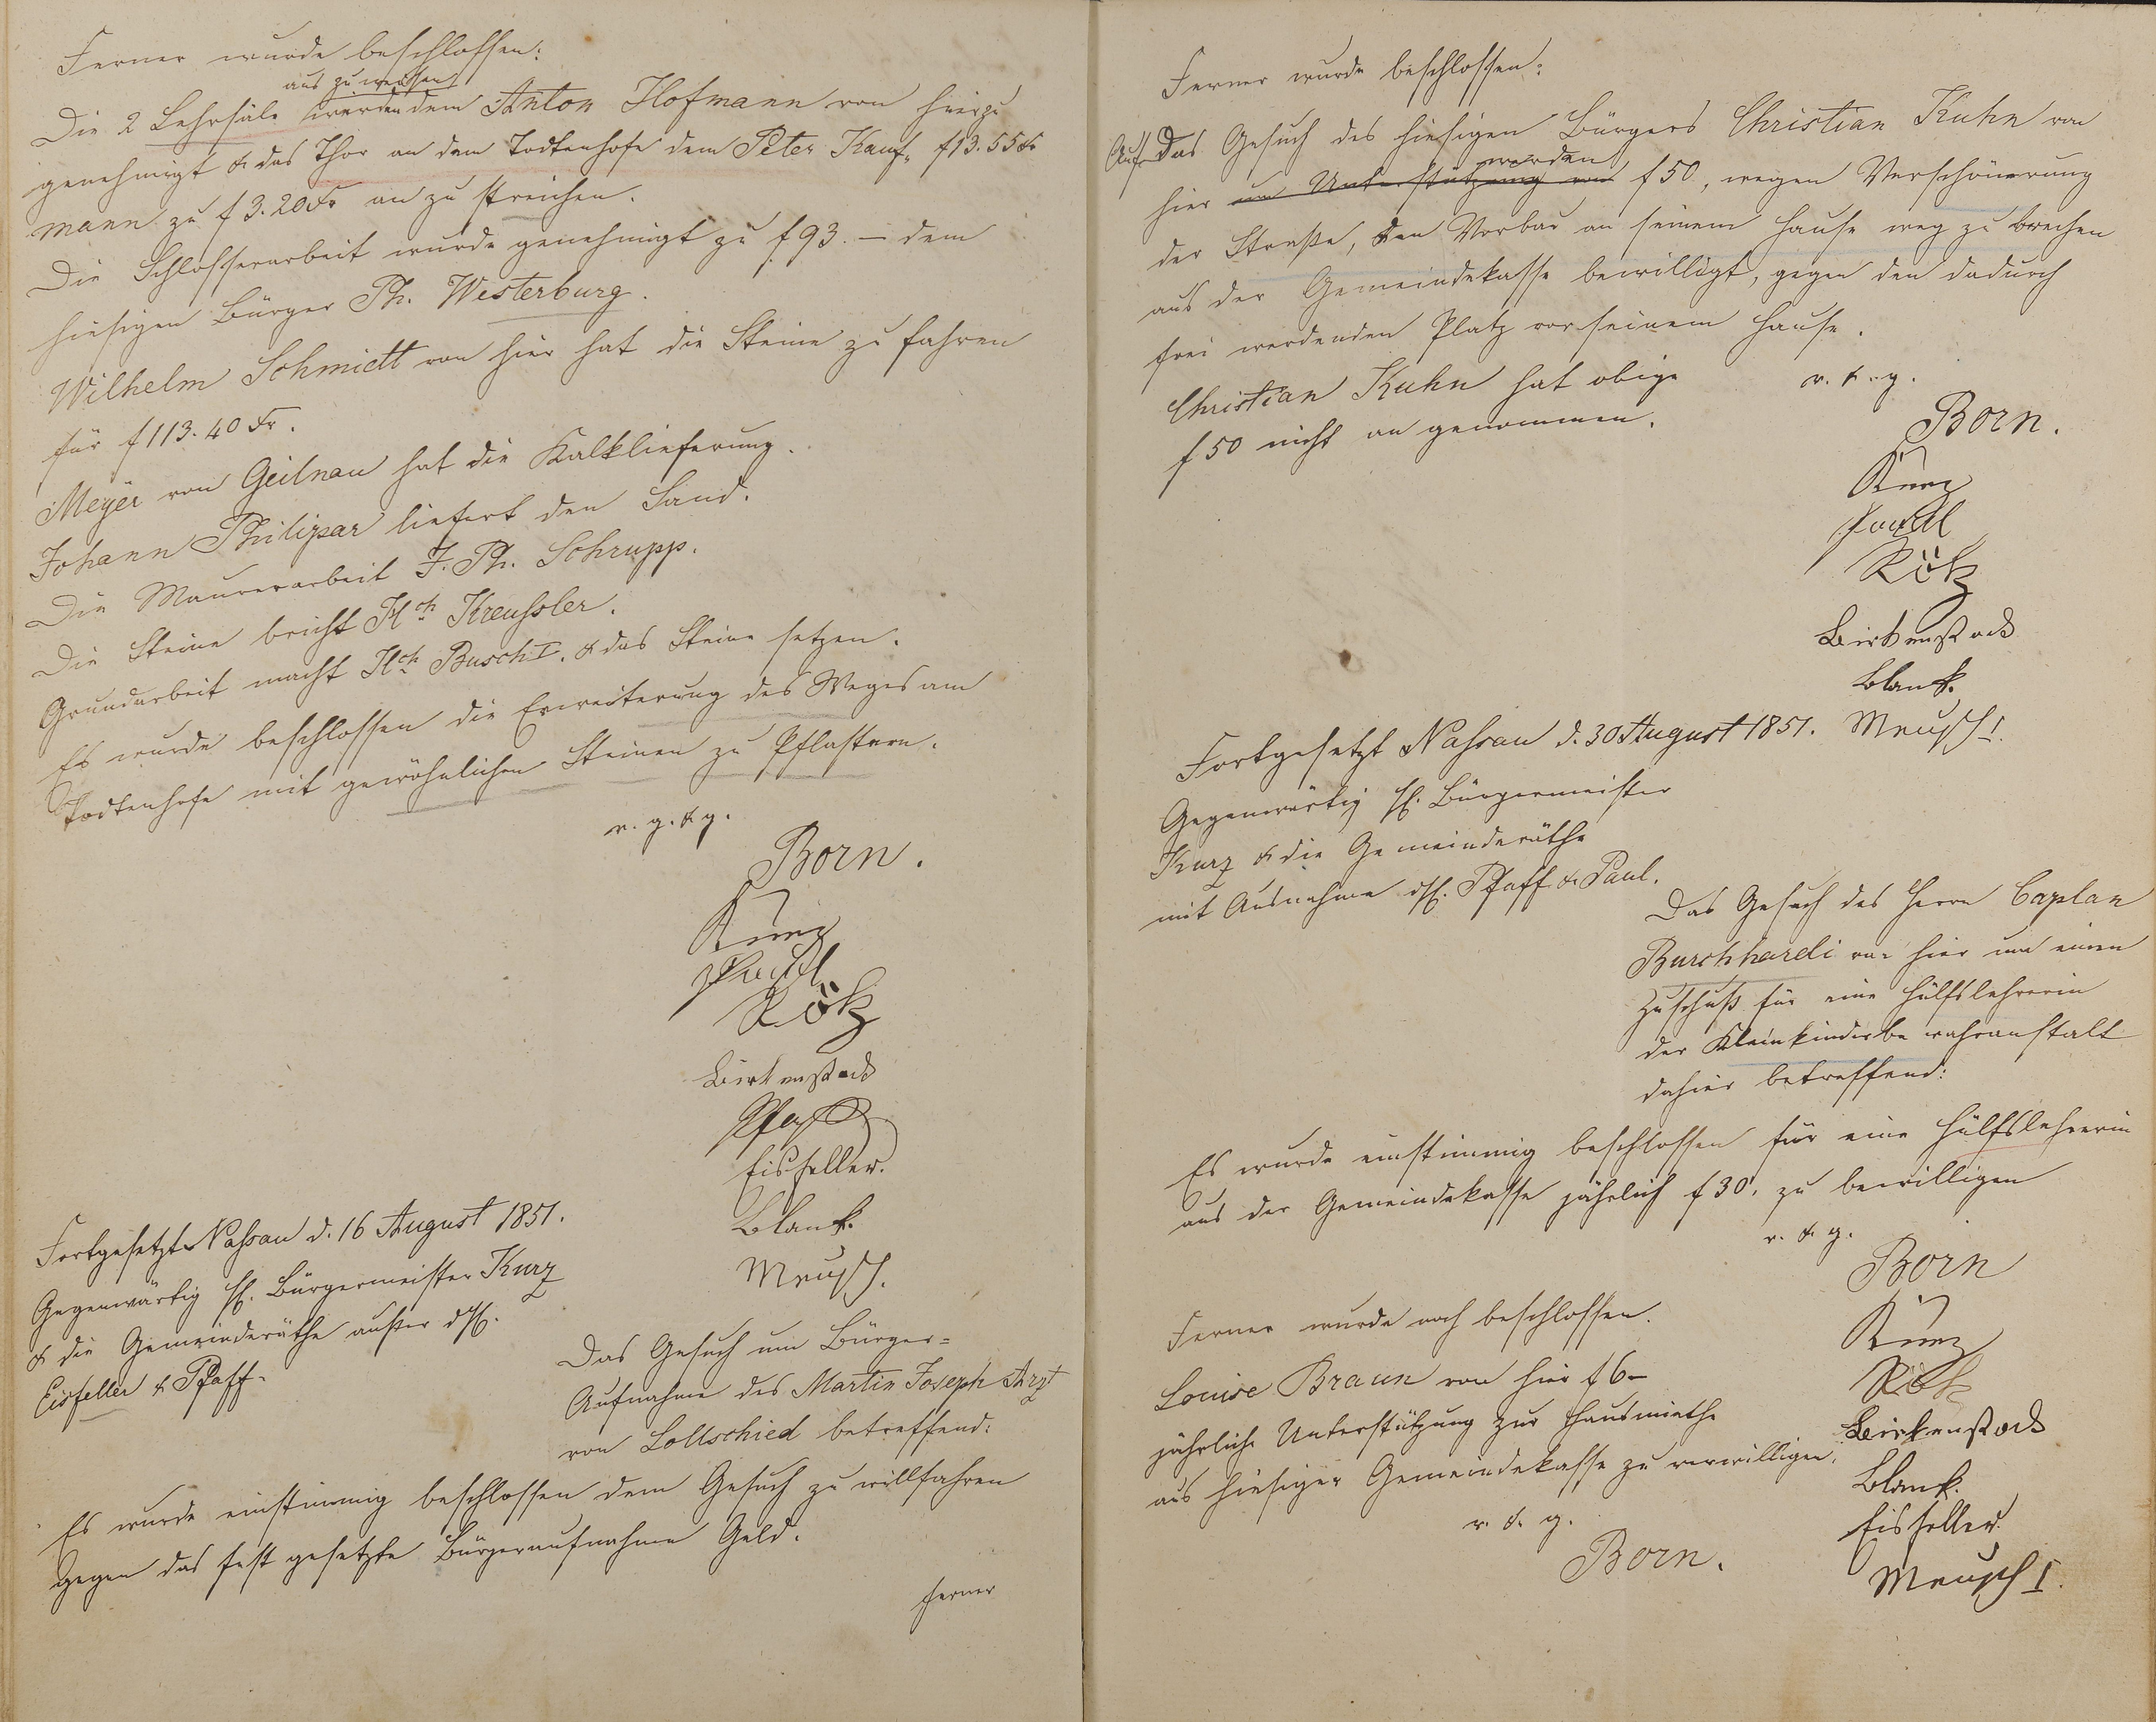 Ferner wurde beschlossen:
aus zu weißen
Die 2 Lehrsäle werden dem Anton Hofmann von hier zu
genehmigt & das Thor an dem Todtenhofe dem Peter Kauf- f 13. 55 Fr
mann zu f 3. 20 Fr an zu streichen.
Die Schlosserarbeit wurde genehmigt zu f 93. – dem
hiesigen Bürger Ph. Westerburg.
Wilhelm Schmidt von hier hat die Steine zu fahren
für f 113. 40 Fr.
Meyer von Geilnau hat die Kalklieferung.
Johann Philipsar liefert den Sand.
Die Maurerarbeit J. Ph. Schrupp.
Die Steine bricht Hch Kreußler.
Grundarbeit macht Hch Busch I. & das Steine setzen.
Es wurde beschlossen die Erweiterung des Weges am
Todtenhofe mit gewöhnlichen Steinen zu Pflastern.
v. g. & g.
Born.
Kurz
Paul
Rötz
Birkenstock
Pfaff
Eisfeller.
Blank.
Meusch.
Fortgesetzt Naßau d. 16 August 1851.
Gegenwärtig H. Bürgermeister Kurz
& die Gemeinderäthe außer dH.
Eisfeller & Pfaff.
Das Gesuch um Bürger=
Aufnahme des Martin Joseph Arzt
von Lollschied betreffend:
Es wurde einstimmig beschlossen dem Gesuch zu willfahren
gegen das fest gesetzte Bürgeraufnahme Geld.
ferner
Ferner wurde beschlossen:
Auf Das Gesuch des hiesigen Bürgers Christian Kuhn von
werden
hier um Unterstützung von f 50, wegen Verschönerung
der Straße, den Vorbau an seinem Hause weg zu brechen
aus der Gemeindekasse bewilligt, gegen den dadurch
frei werdenden Platz vor seinem Hause.
Christian Kuhn hat obige
f 50 nicht an genommen.
v. & g.
Born.
Kurz
Paul
Rötz
Birkenstock
Blank.
Meusch I.
Fortgesetzt Naßau d. 30 August 1851.
Gegenwärtig H. Bürgermeister
Kurz & die Gemeinderäthe
mit Ausnahme dH. Pfaff & Paul.
Das Gesuch des Herrn Caplan
Burchhardi von hier um einen
Zuschuß für eine Hülfslehrerin
der Kleinkinderbewahranstalt
dahier betreffend:
Es wurde einstimmig beschlossen für eine Hülfslehrerin
aus der Gemeindekasse jährlich f 30, zu bewilligen
v. & g.
Born
Kurz
Rötz
Birkenstock
Blank.
Eisfeller.
Meusch I.
Ferner wurde noch beschlossen.
Louise Braun von hier f 6 –
jährliche Unterstützung zur Hausmiethe
aus hiesiger Gemeindekasse zu verwilligen.
v. & g.
Born.